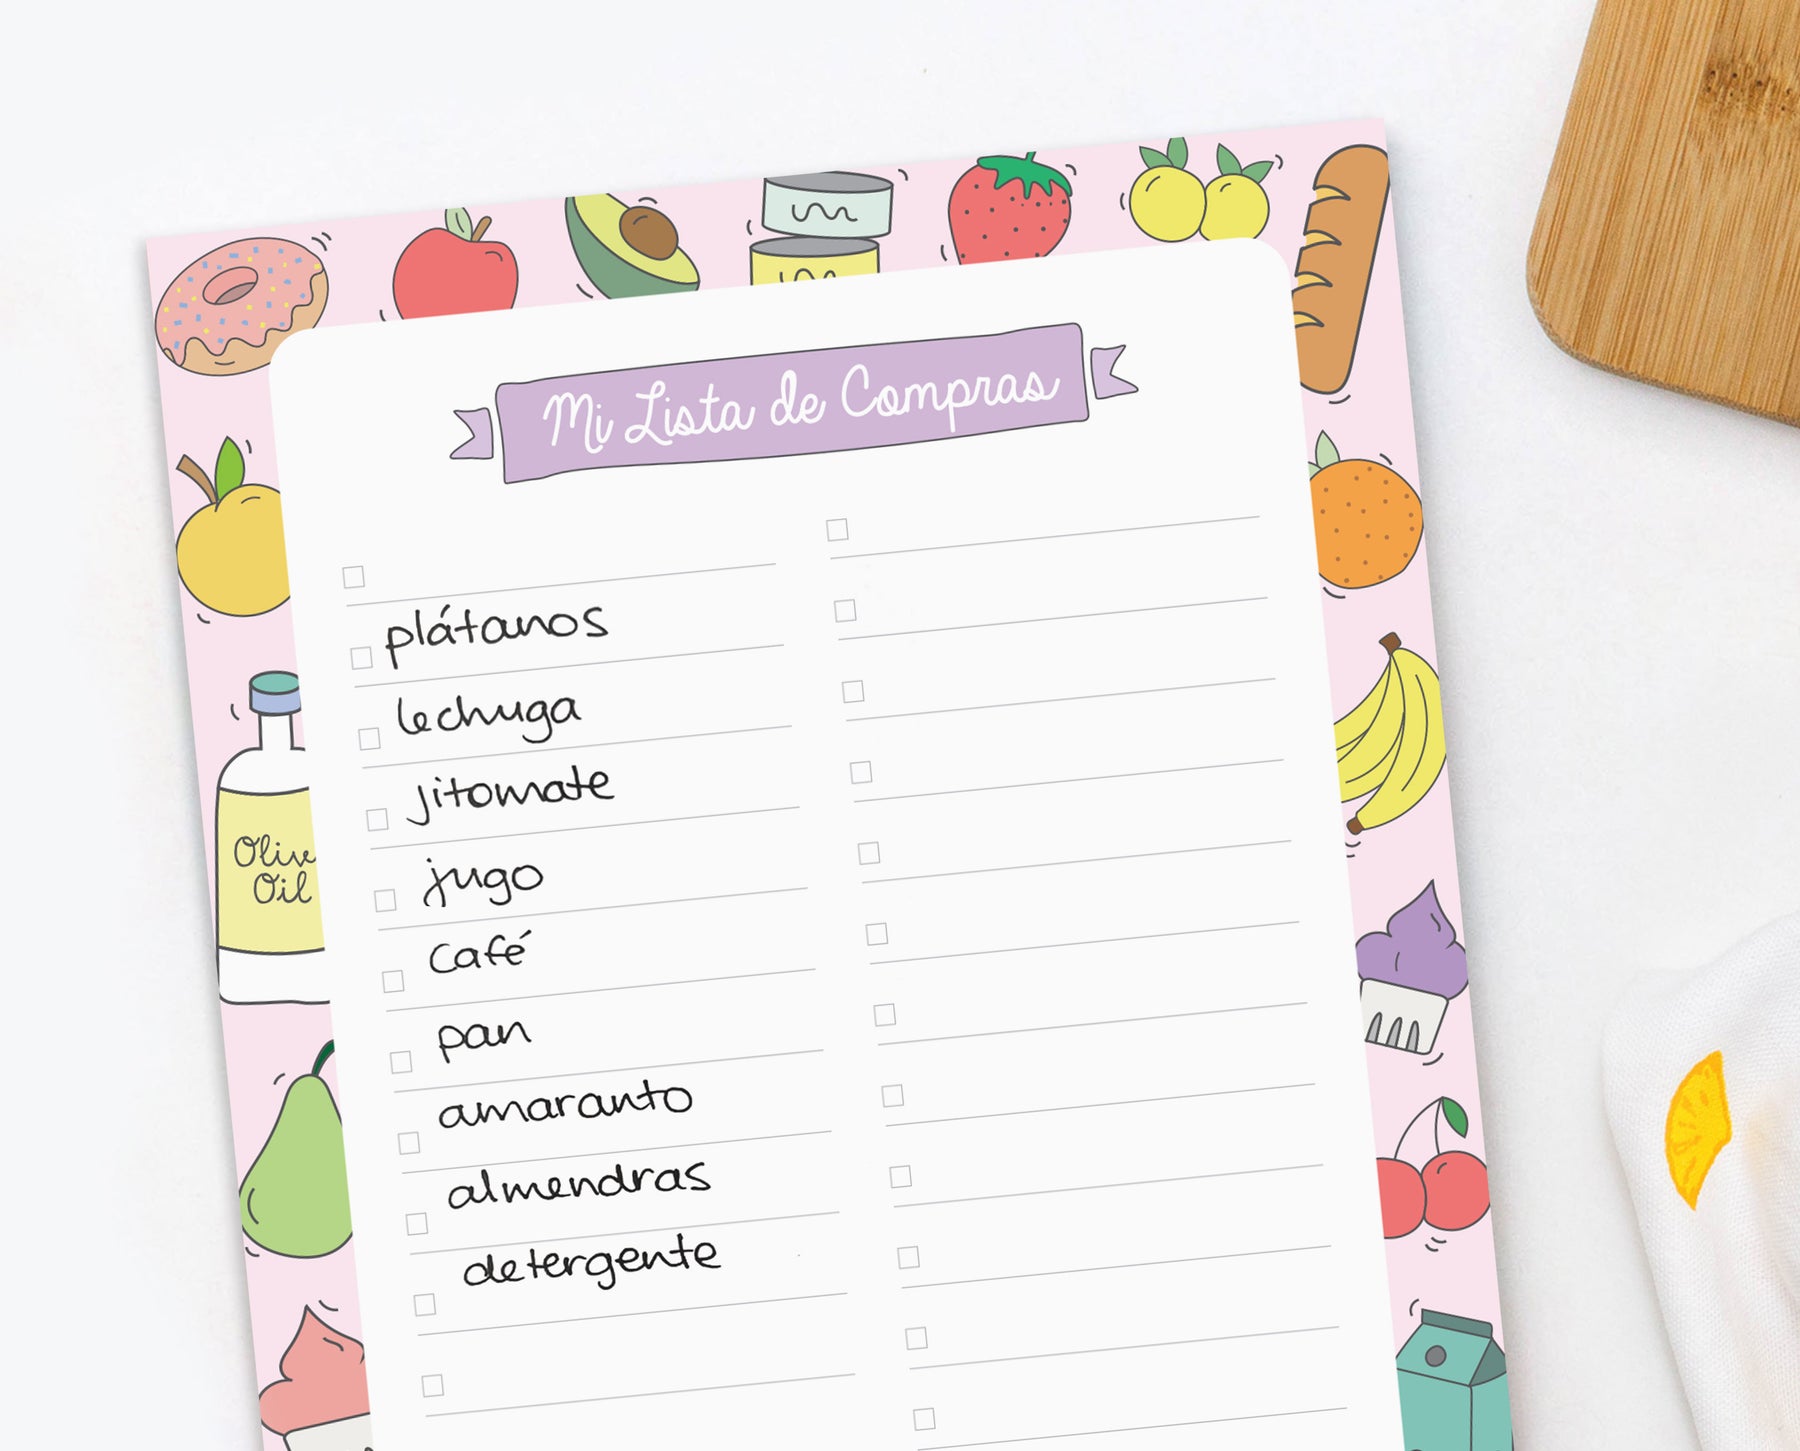 Mi Lista de Compras
plátanos
lechuga
jitomate
jugo
café
pan
amaranto
almendras
detergente
Olive
Oil